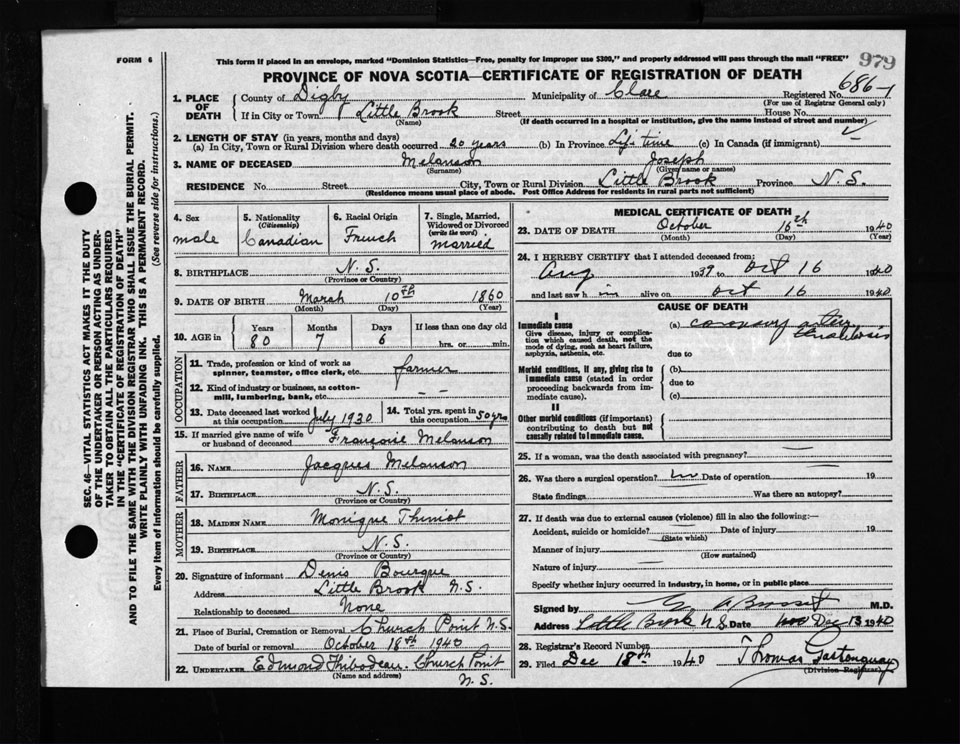 FORM 6
This form if placed in an envelope, marked "Dominion Statistics—Free, penalty for improper use $300," and properly addressed will pass through the mail "FREE"
979
PROVINCE OF NOVA SCOTIA—CERTIFICATE OF REGISTRATION OF DEATH
686-1
1. PLACE OF DEATH
County of Digby Municipality of Clare Registered No.
(For use of Registrar General only)
If in City or Town Little Brook Street House No.
(Name) (If death occurred in a hospital or institution, give the name instead of street and number)
2. LENGTH OF STAY (in years, months and days)
(a) In City, Town or Rural Division where death occurred 20 years (b) In Province Life time (c) In Canada (if immigrant)
3. NAME OF DECEASED Melanson Joseph
(Surname) (Given name or names)
RESIDENCE No. Street City, Town or Rural Division Little Brook Province N.S.
(Residence means usual place of abode. Post Office Address for residents in rural parts not sufficient)
4. Sex
male
5. Nationality
(Citizenship)
Canadian
6. Racial Origin
French
7. Single, Married, Widowed or Divorced
(write the word)
married
8. BIRTHPLACE N.S.
(Province or Country)
9. DATE OF BIRTH March 10th 1860
(Month) (Day) (Year)
10. AGE in
Years Months Days If less than one day old
80 7 6 hrs. or min.
OCCUPATION
11. Trade, profession or kind of work as spinner, teamster, office clerk, etc. farmer
12. Kind of industry or business, as cotton-mill, lumbering, bank, etc. — —
13. Date deceased last worked at this occupation July 1930
14. Total yrs. spent in this occupation 50 yrs
15. If married give name of wife or husband of deceased Françoise Melanson
FATHER
16. NAME Jacques Melanson
17. BIRTHPLACE N.S.
(Province or Country)
MOTHER
18. MAIDEN NAME Monique
19. BIRTHPLACE N.S.
(Province or Country)
20. Signature of informant Denis Bourque
Address Little Brook N.S.
Relationship to deceased None
21. Place of Burial, Cremation or Removal Church Point N.S.
Date of burial or removal October 18th 1940
22. UNDERTAKER Edmond Thibodeau Church Point
(Name and address) N.S.
MEDICAL CERTIFICATE OF DEATH
23. DATE OF DEATH October 16th 1940
(Month) (Day) (Year)
24. I HEREBY CERTIFY that I attended deceased from:
Aug 1939 to Oct 16 1940
and last saw h im alive on Oct 16 1940
CAUSE OF DEATH
I
Immediate cause
Give disease, injury or complication which caused death, not the mode of dying, such as heart failure, asphyxia, asthenia, etc.
(a) coronary artery
thrombosis
due to
Morbid conditions, if any, giving rise to immediate cause (stated in order proceeding backwards from immediate cause).
(b)
due to
(c)
II
Other morbid conditions (if important) contributing to death but not causally related to immediate cause.
25. If a woman, was the death associated with pregnancy?
26. Was there a surgical operation? no Date of operation 19
State findings Was there an autopsy?
27. If death was due to external causes (violence) fill in also the following:—
Accident, suicide or homicide? Date of injury 19
(State which)
Manner of injury
(How sustained)
Nature of injury
Specify whether injury occurred in industry, in home, or in public place
Signed by M.D.
Address Little Brook N.S. Date Dec 13 1940
28. Registrar's Record Number
29. Filed Dec 18th 1940 Thomas
(Division Registrar)
SEC. 46—VITAL STATISTICS ACT MAKES IT THE DUTY
OF THE UNDERTAKER OR PERSON ACTING AS UNDER-
TAKER TO OBTAIN ALL THE PARTICULARS REQUIRED
IN THE "CERTIFICATE OF REGISTRATION OF DEATH"
AND TO FILE THE SAME WITH THE DIVISION REGISTRAR WHO SHALL ISSUE THE BURIAL PERMIT.
WRITE PLAINLY WITH UNFADING INK. THIS IS A PERMANENT RECORD.
Every item of information should be carefully supplied. (See reverse side for instructions.)